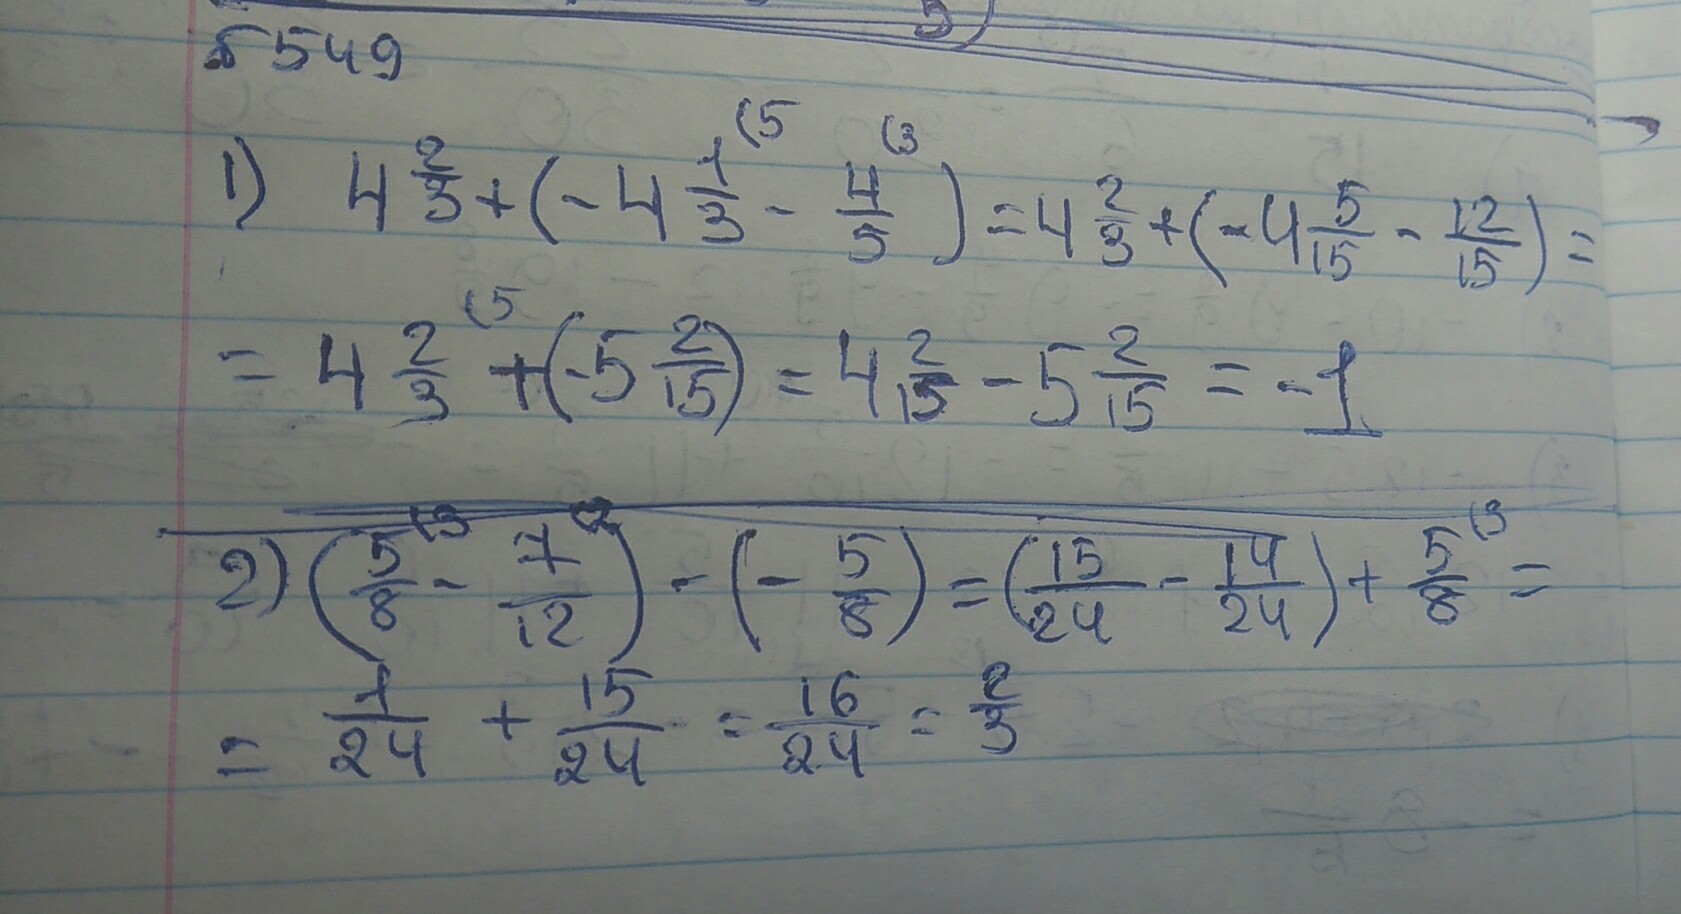 549
1) 4 2/3 + (-4 1/3 (5 - 4/5 (3) = 4 2/3 + (-4 5/15 - 12/15) =
= 4 2/3 (5 + (-5 2/15) = 4 2/15 - 5 2/15 = -1
2) (5/8 (3 - 7/12 (2) - (-5/8) = (15/24 - 14/24) + 5/8 (3 =
= 1/24 + 15/24 = 16/24 = 2/3